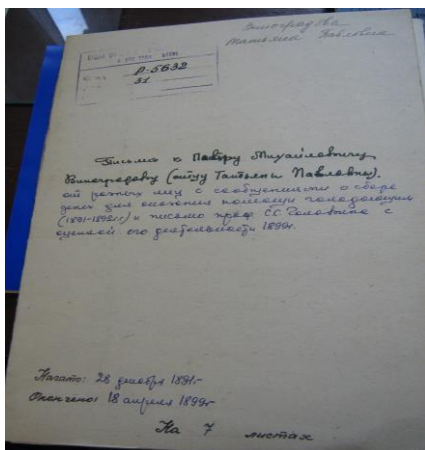 Виноградова
Татьяна Павловна
Р-5632
31
Письма к Павлу Михайловичу
Виноградову (отцу Татьяны Павловны).
от разных лиц с сообщениями о сборе
денег для оказания помощи голодающим
(1891-1892г.г) и письмо проф. С.С. Головина с
оценкой его деятельности 1899г.
Начато: 28 декабря 1891г
Окончено: 18 апреля 1899г
На 7 листах